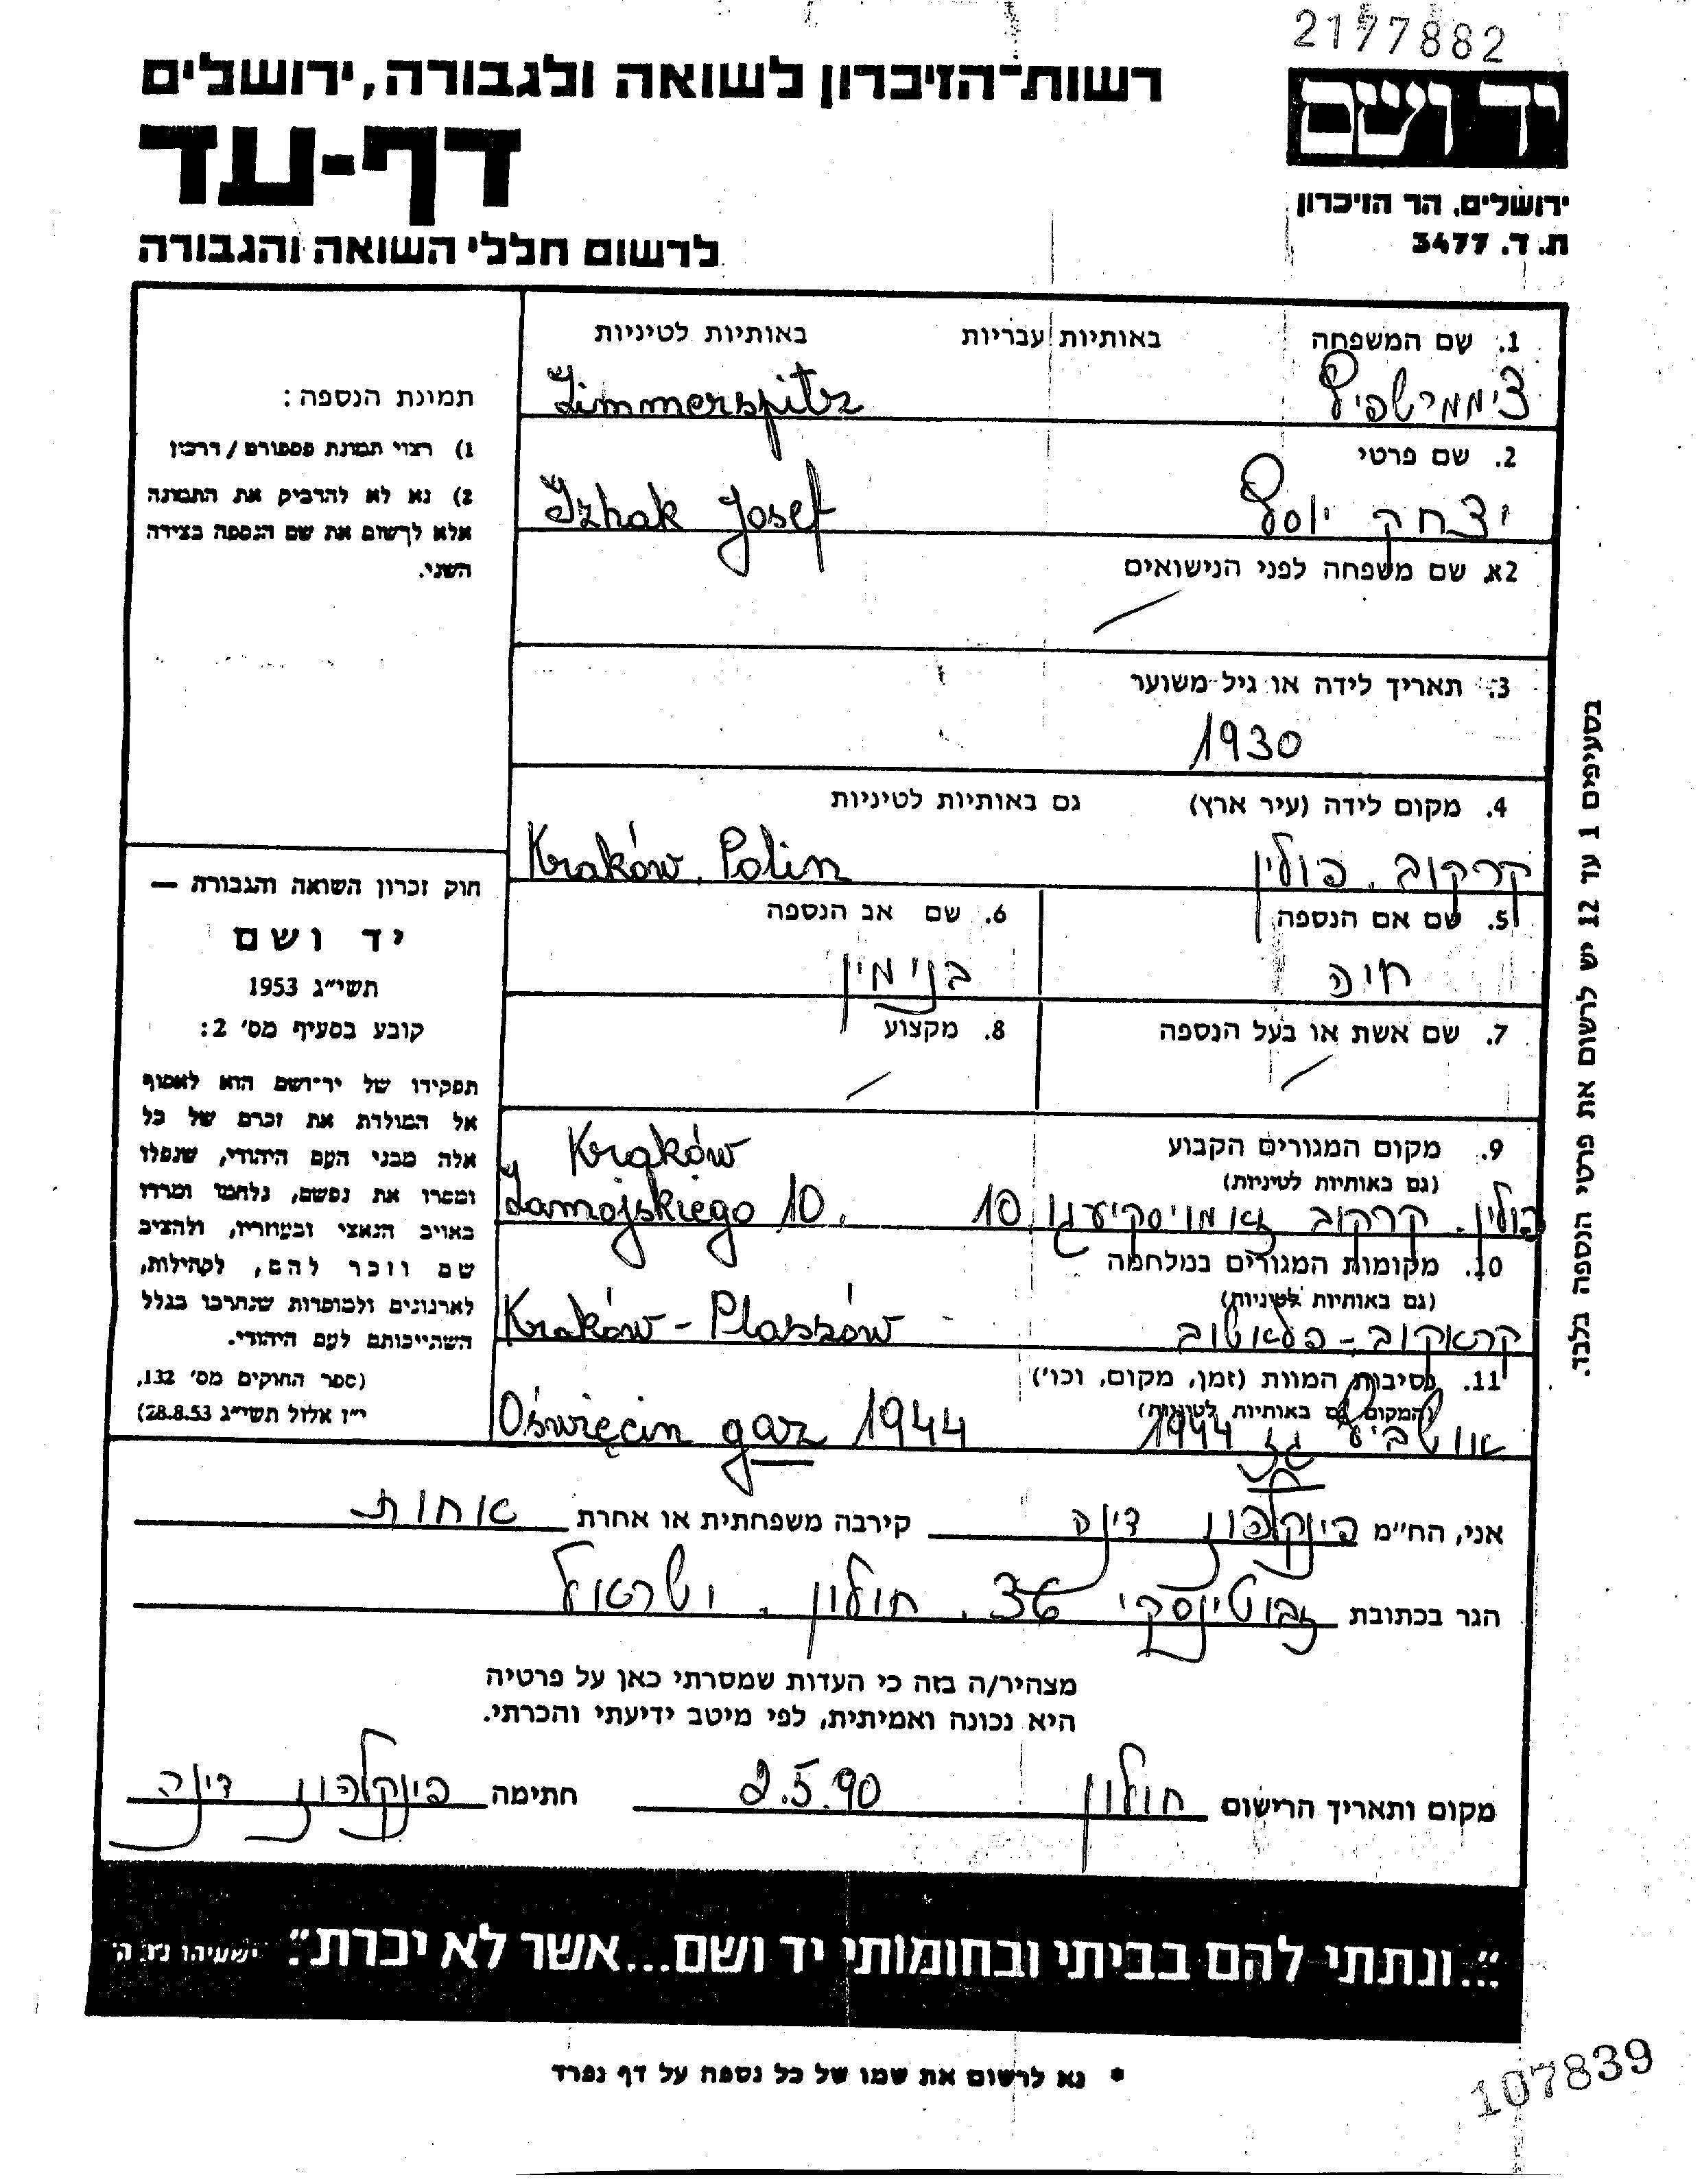 2177882
יד ושם
רשות-הזיכרון לשואה ולגבורה, ירושלים
דף-עד
לרשום חללי השואה והגבורה
ירושלים, הר הזיכרון
ת. ד. 3477
1. שם המשפחה באותיות עבריות באותיות לטיניות
צימרשפיץ Zimmerspitz
2. שם פרטי
יצחק יוסף Izhak Josef
2א. שם משפחה לפני הנישואים
3. תאריך לידה או גיל משוער
1930
4. מקום לידה (עיר ארץ) גם באותיות לטיניות
קרקוב. פולין Kraków. Polin
5. שם אם הנספה 6. שם אב הנספה
חיה בנימין
7. שם אשת או בעל הנספה 8. מקצוע
9. מקום המגורים הקבוע
(גם באותיות לטיניות)
Kraków
פולין. קרקוב זאמויסקיעגו 10 Zamojskiego 10.
10. מקומות המגורים במלחמה
(גם באותיות לטיניות)
קראקוב - פלאשוב Kraków - Płaszów
11. נסיבות המוות (זמן, מקום, וכו')
(המקום גם באותיות לטיניות)
גז 1944 Oświęcin gaz 1944
תמונת הנספה:
1) רצוי תמונת פספורט / דרכון
2) נא לא להדביק את התמונה
אלא לרשום את שם הנספה בצידה
השני.
חוק זכרון השואה והגבורה —
יד ושם
תשי״ג 1953
קובע בסעיף מס׳ 2:
תפקידו של יד־ושם הוא לאסוף
אל המולדת את זכרם של כל
אלה מבני העם היהודי, שנפלו
ומסרו את נפשם, נלחמו ומרדו
באויב הנאצי ובעוזריו, ולהציב
שם וזכר להם, לקהילות,
לארגונים ולמוסדות שנחרבו בגלל
השתייכותם לעם היהודי.
(ספר החוקים מס׳ 132,
י״ז אלול תשי״ג 28.8.53)
בסעיפים 1 עד 12 יש לרשום את פרטי הנספה בלבד.
אני, הח״מ פינקלהון דינה קירבה משפחתית או אחרת אחות
הגר בכתובת זבוטינסקי 36. חולון. ישראל
מצהיר/ה בזה כי העדות שמסרתי כאן על פרטיה
היא נכונה ואמיתית, לפי מיטב ידיעתי והכרתי.
מקום ותאריך הרישום חולון 2.5.90 חתימה פינקלהון דינה
״...ונתתי להם בביתי ובחומותי יד ושם...אשר לא יכרת״. ישעיהו נו, ה׳
* נא לרשום את שמו של כל נספה על דף נפרד
107839